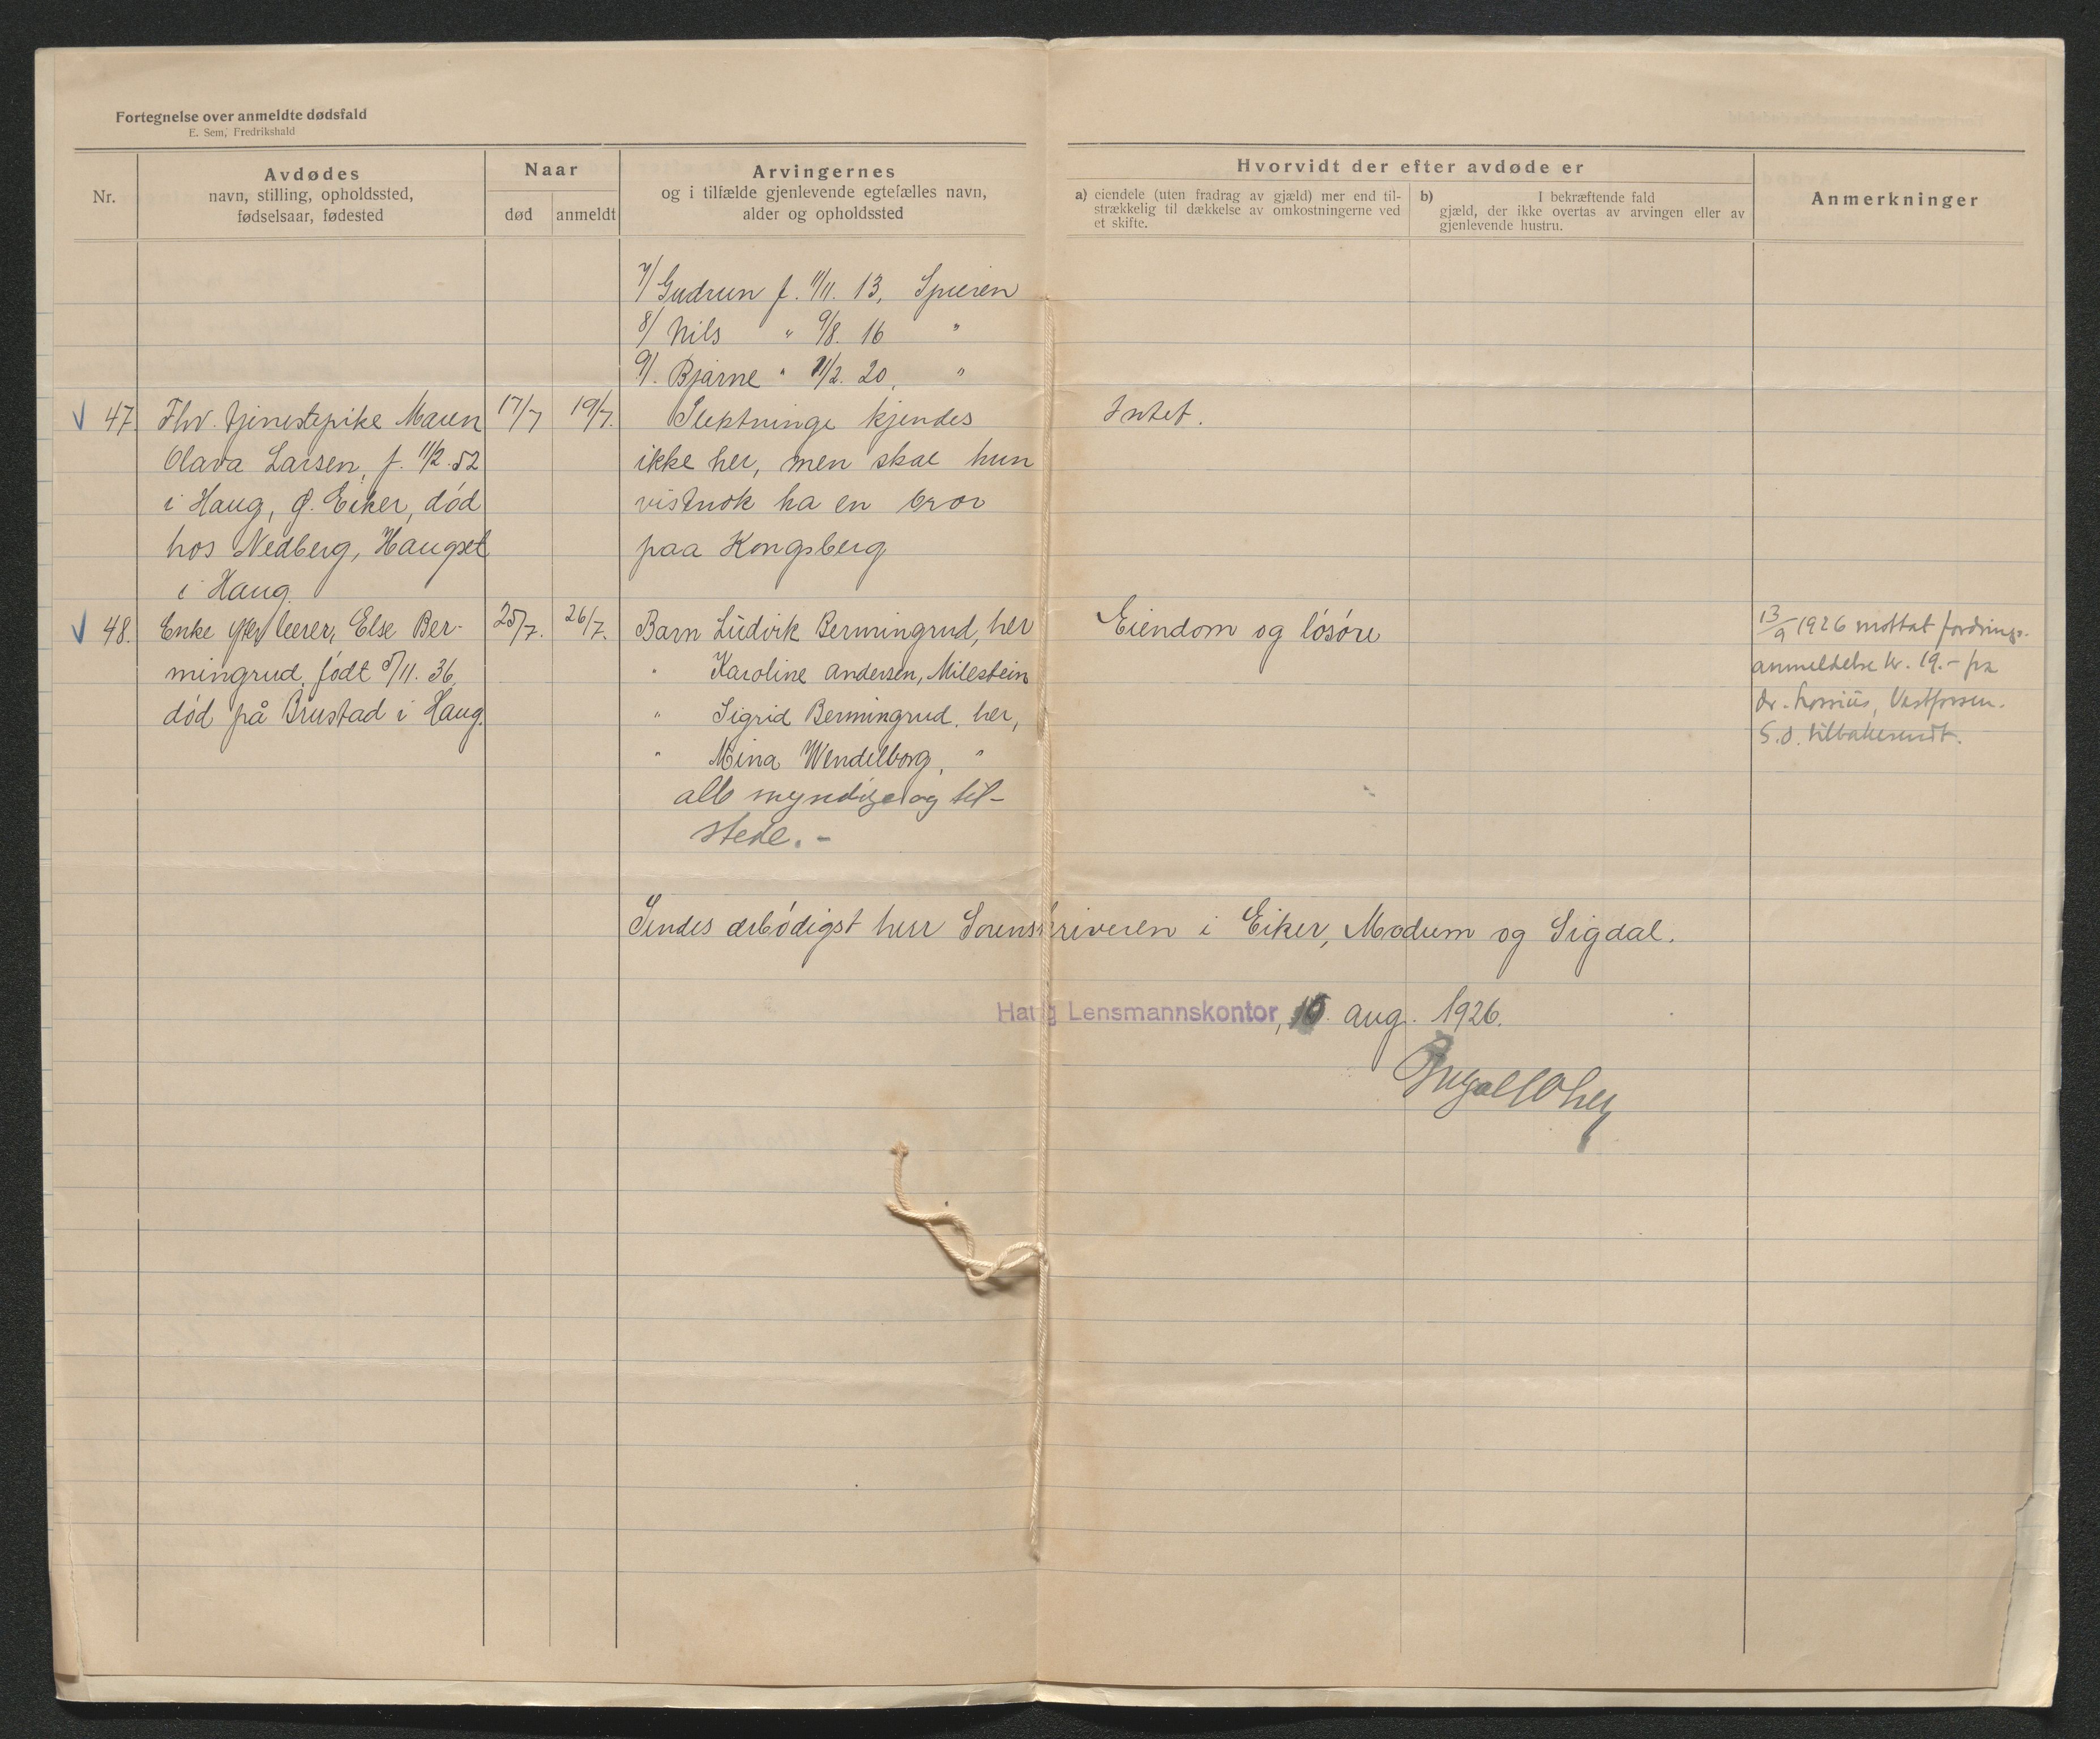 Fortegnelse over anmeldte dødsfald
E. Sem, Fredrikshald
Nr.
Avdødes
navn, stilling, opholdssted,
fødselsaar, fødested
Naar
død
anmeldt
Arvingernes
og i tilfælde gjenlevende egtefælles navn,
alder og opholdssted
Hvorvidt der efter avdøde er
a) eiendele (uten fradrag av gjæld) mer end til-
strækkelig til dækkelse av omkostningerne ved
et skifte.
b) I bekræftende fald
gjæld, der ikke overtas av arvingen eller av
gjenlevende hustru.
Anmerkninger
7/ Gudrun f. 11/11. 13, Spieren
8/ Nils " 9/8. 16 "
9/. Bjarne " 11/2. 20, "
47. Fhv. tjenestepike Maren 17/7 19/7. Slektninge kjendes Intet.
Olava Larsen, f. 11/2 52 ikke her, men skal hun
i Haug, Ø. Eiker, død vistnok ha en bror
hos Nedberg, Haugset paa Kongsberg
i Haug.
48. Enke efter Else Ber- 25/7. 26/7. Barn Ludvik Bermingrud, her Eiendom og løsøre 13/9 1926 mottat fordrings-
mingrud, født 5/11. 36, " Karoline Andersen, Milestein anmeldelse kr. 19.- fra
død på Brustad i Haug. " Sigrid Bermingrud, her, dr. Vestfossen.
" Mina Wendelborg, " S.d. tilbakesendt.
alle myndige og til-
stede. -
Sendes ærbødigst herr Sorenskriveren i Eiker, Modum og Sigdal.
Haug Lensmannskontor, 10. aug. 1926.